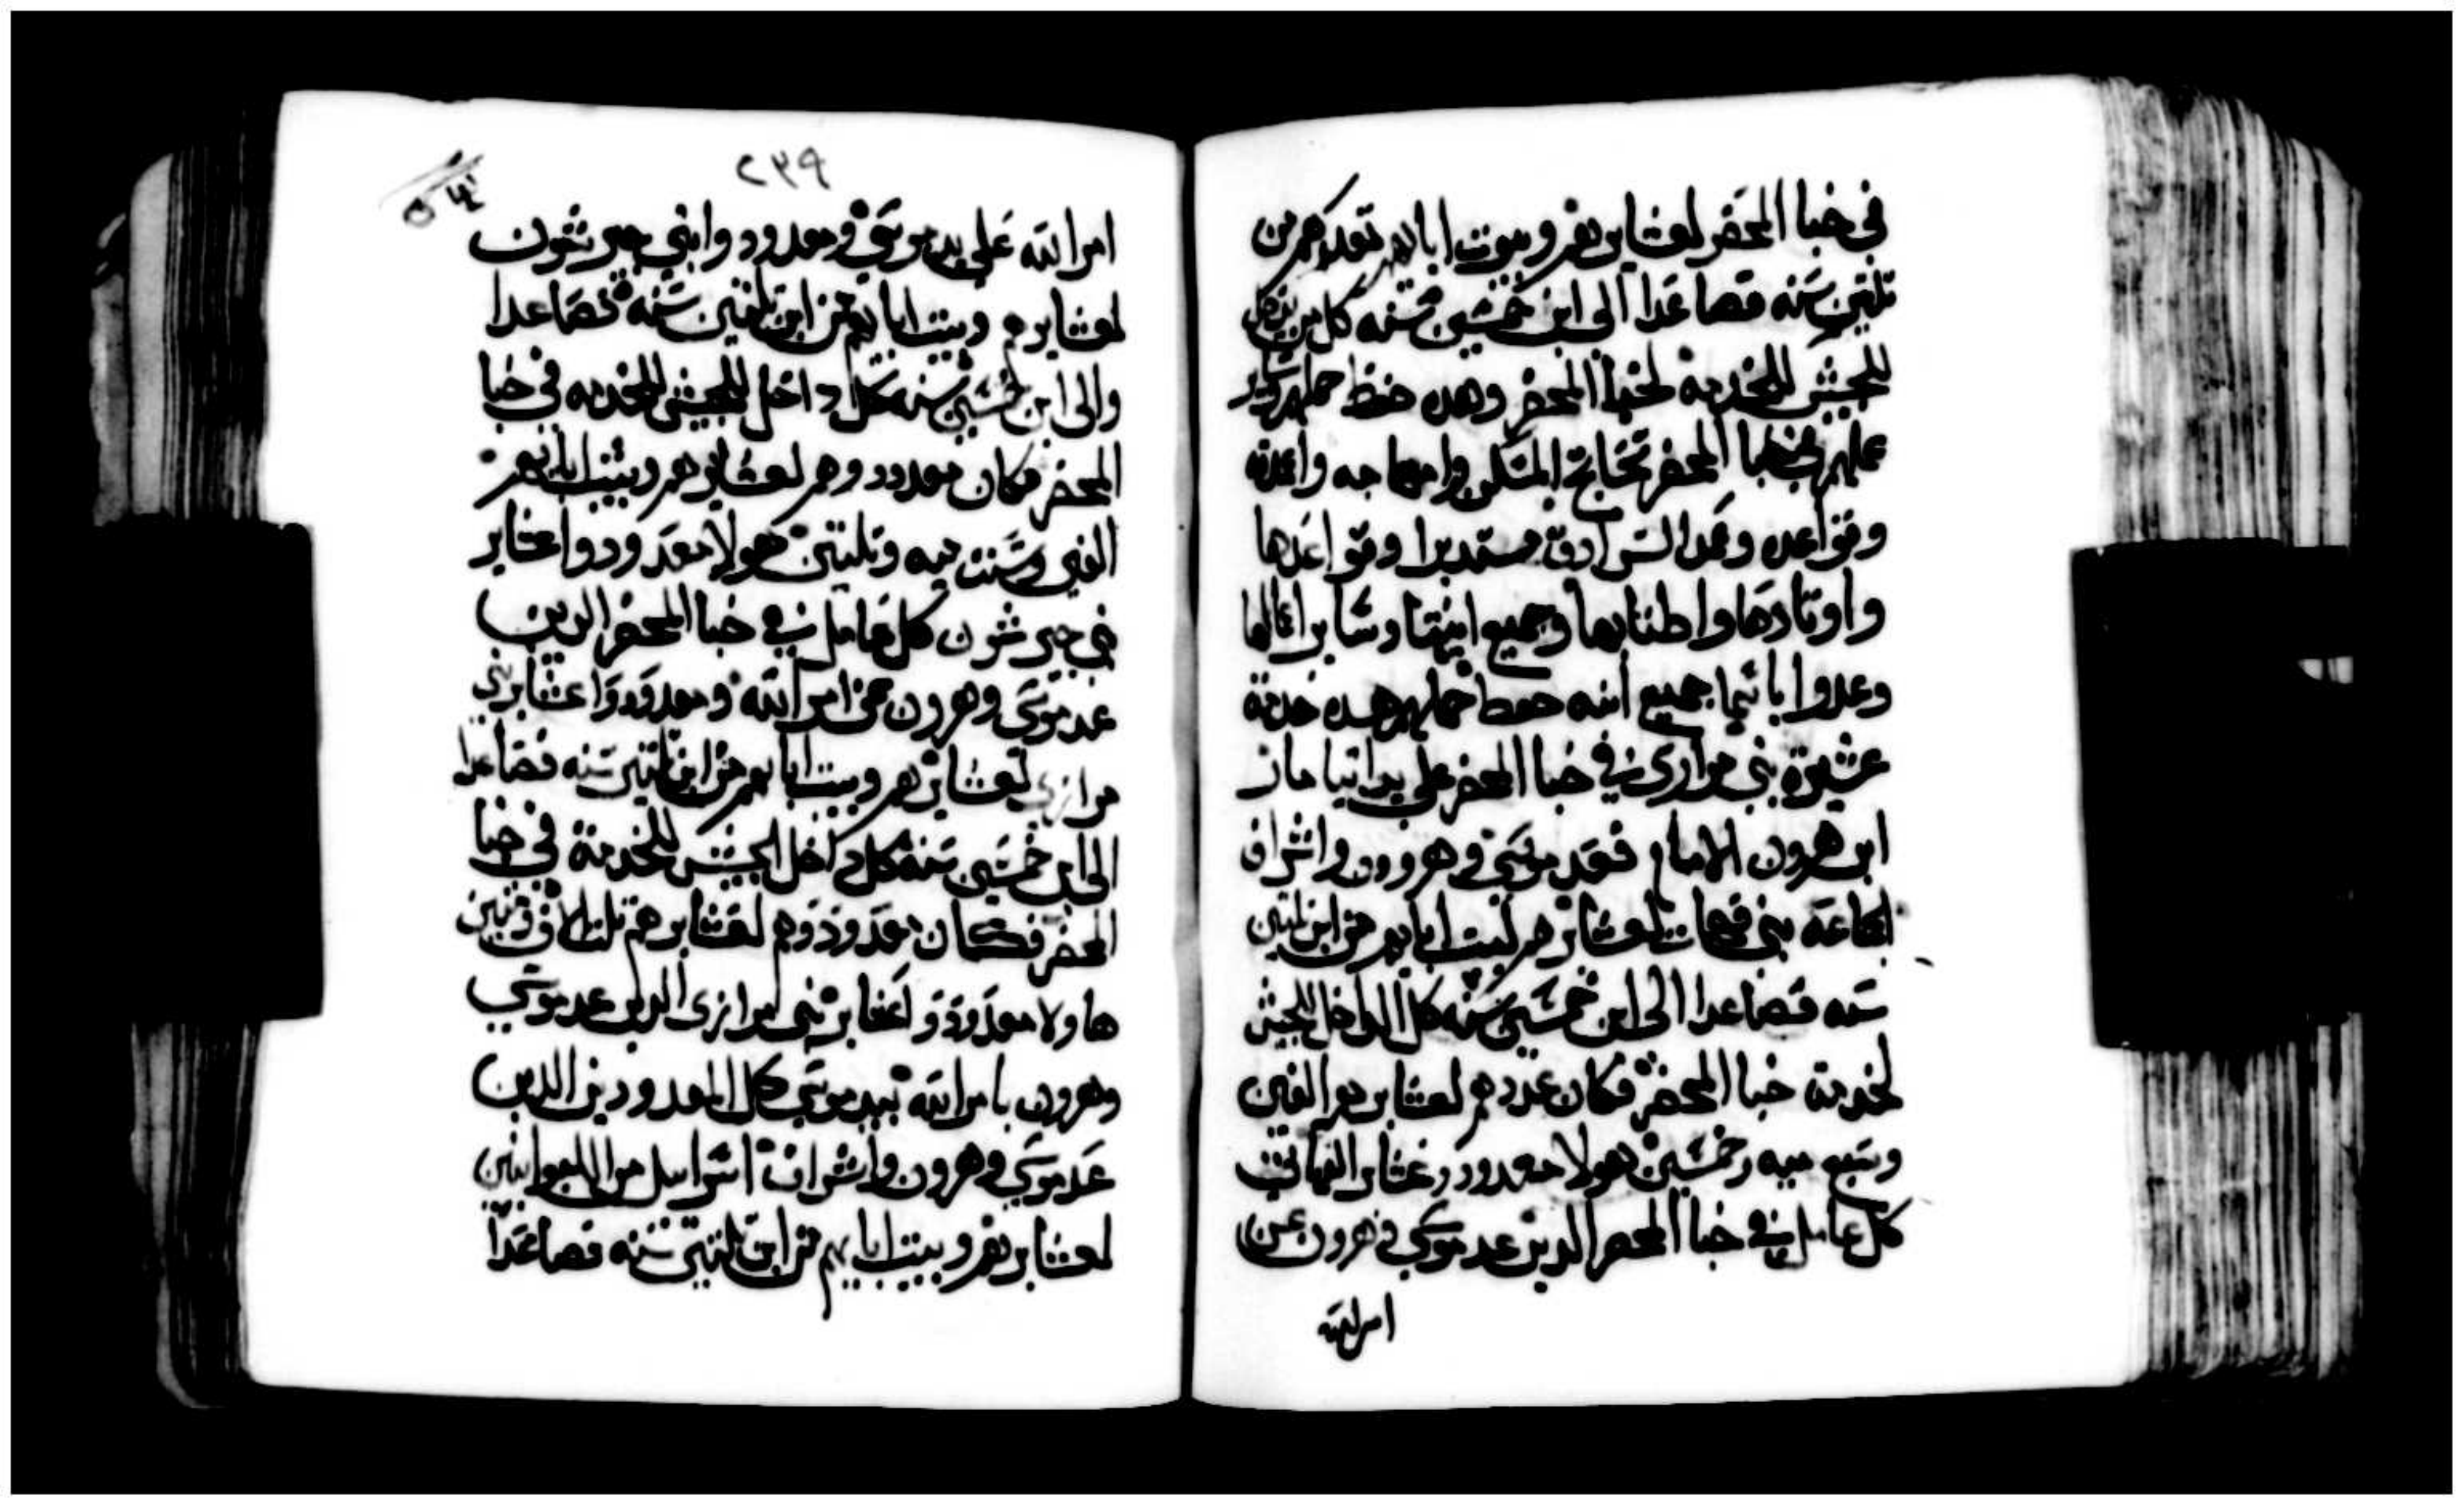 في خبا المحضر لعشايرهم وبيوت اباايهم تعدكهم من
تلتين سنه فصاعدا الى ابن خمسين سنه كل من يدخل
للجيش للخدمة لخبا المحضر وهده حفظ حملهم وساير
عملهم بخبا المحضر تخاتج المسكن وامهاجه واعمدته
وقواعده وعمد السرادق مستديرا وقواعدها
واوتادها واطنابها وجميع انيتها وساير اعمالها
وعدوا باسما جميع انيه حفظ حملهم هده خدمة
عشيرة بني مراري في خبا المحضر على يد اتيامار
ابن هرون الامام فعد موسى وهرون واشراف
الجماعه بني قهات لعشايرهم لبيت اباايهم من ابن تلتين
سنه فصاعدا الى ابن خمسين سنه كل الداخل للجيش
لخدمة خبا المحضر فكان عددهم لعشايرهم الفين
وسبع ميه وخمسين هولا معدودو عشاير القهاتي
كل عامل في خبا المحضر الدين عد موسى وهرون عن
امر الله
٢٣٩
امر الله على يد موسى ومعدودو ابني جيرشون
لعشايرهم وبيت اباايهم من ابن تلتين سنه فصاعدا
والى ابن خمسين سنه كل داخل للجيش للخدمه في خبا
المحضر فكان معدودوهم لعشايرهم وبيت اباايهم
الفين وست ميه وتلتين هولا معدودو اعشاير
بني جيرشون كل عامل في خبا المحضر الدين
عد موسى وهرون عن امر الله ومعدودو اعشاير بني
مرازي لعشايرهم وبيت اباايهم من ابن تلتين سنه فصاعدا
الى ابن خمسين سنه كل داخل الجيش للخدمة في خبا
المحضر فكان معدودوهم لعشايرهم تلتة الاف وميتين
هاولا معدودو اعشاير بني مرازي الدين عد موسى
وهرون بامر الله بيد موسى كل المعدودين الدين
عد موسى وهرون واشراف اسرايل من الليوانيين
لعشايرهم وبيت اباايهم من ابن تلتين سنه فصاعدا